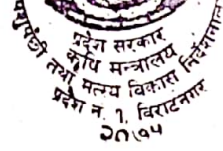 प्रदेश सरकार
कृषि मन्त्रालय
पशुपंछी तथा मत्स्य विकास निर्देशनालय
प्रदेश नं. १, विराटनगर
२०७५